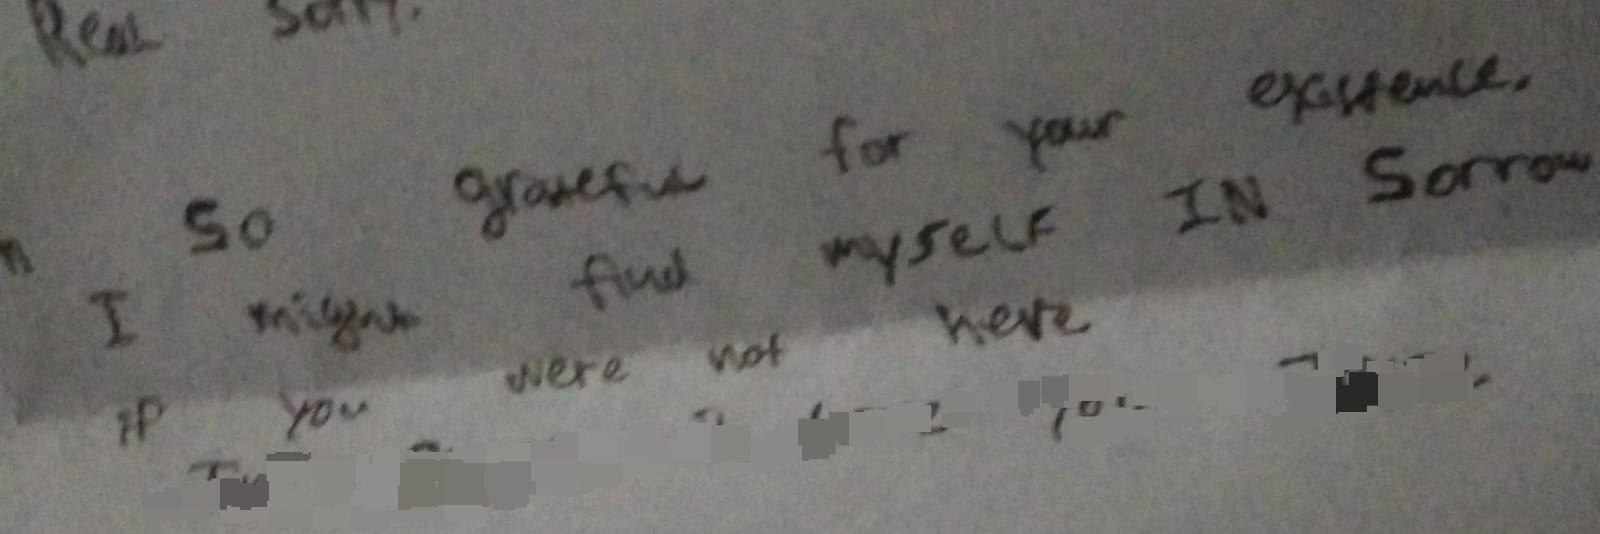 Real sorry.
So grateful for your existence.
I might find myself IN Sorrow
if you were not here